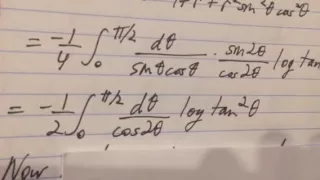 1+1²sin²θcos²θ
= -1/4 ∫₀^π/2 dθ/sinθcosθ · sin2θ/cos2θ log tan
= -1/2 ∫₀^π/2 dθ/cos2θ log tan²θ
Now